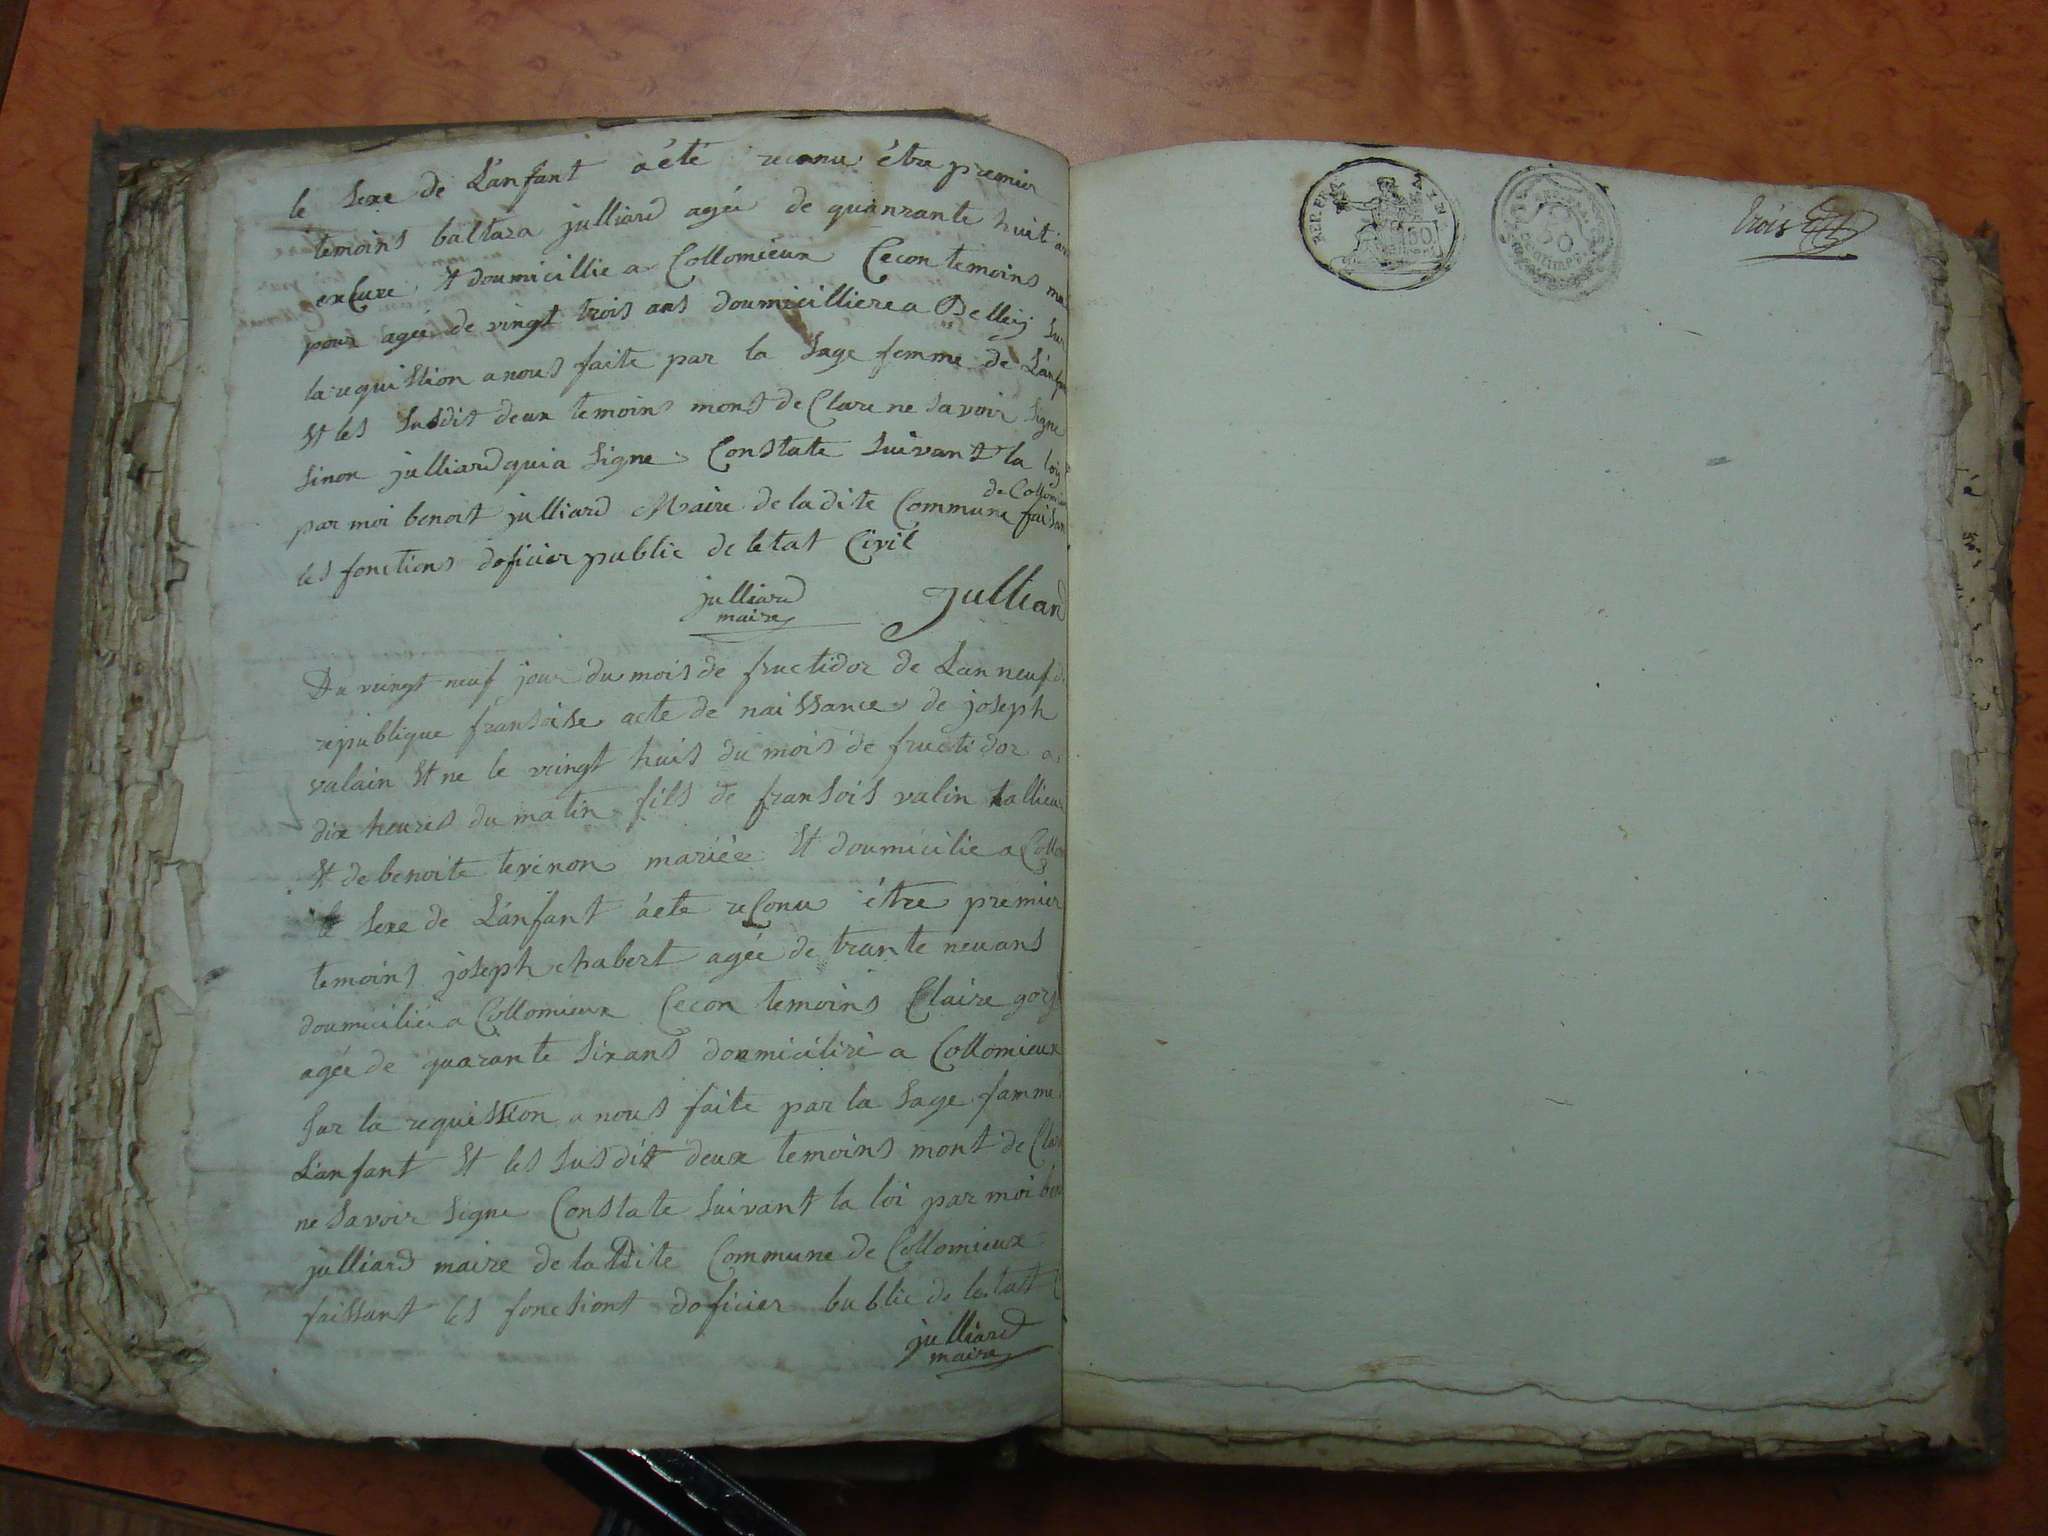 le sexe de L'anfant a été reconu être premier
temoins baltaza julliard agée de quanrante huit an
exCure Et doumicillie a Collomieux Cecon temoins
pour agée de vingt trois ans doumicilliere a Belleij sur
la requistion a nous faite par la sage femme de L'anfan
Et les susdit deux temoins mont deClare ne savoir signe
sinon julliard qui a signe Constate suivant la loy
de Collomieu
par moi benoit julliard Maire de la dite Commune faisan
les fonctions doficier public de letat Civil
julliard
maire
Julliard
Du vingt neuf jour du mois de fructidor de Lan neuf
republique fransoise acte de naissance de joseph
valain Et ne le vingt huis du mois de fructidor a
dix heures du matin fils de fransois valin tallieur
Et de benoite terinon mariée Et doumicilie a Collom
le sexe de L'anfant a ete reConu être premier
temoins joseph chabert agée de trante neu ans
doumicilié a Collomieux Cecon temoins Claire
agée de quarante six ans doumiciliré a Collomieux
sur la requission a nous faite par la sage famme
L'anfant Et les susdit deux temoins mont de Clar
ne savoir signe Constate suivant la loi par moi ben
julliard maire de la Dite Commune de Collomieux
faissant les fonctiont doficier bublic de letat
julliard
maire
REP. FRA.
50
50
CENTIMES
trois